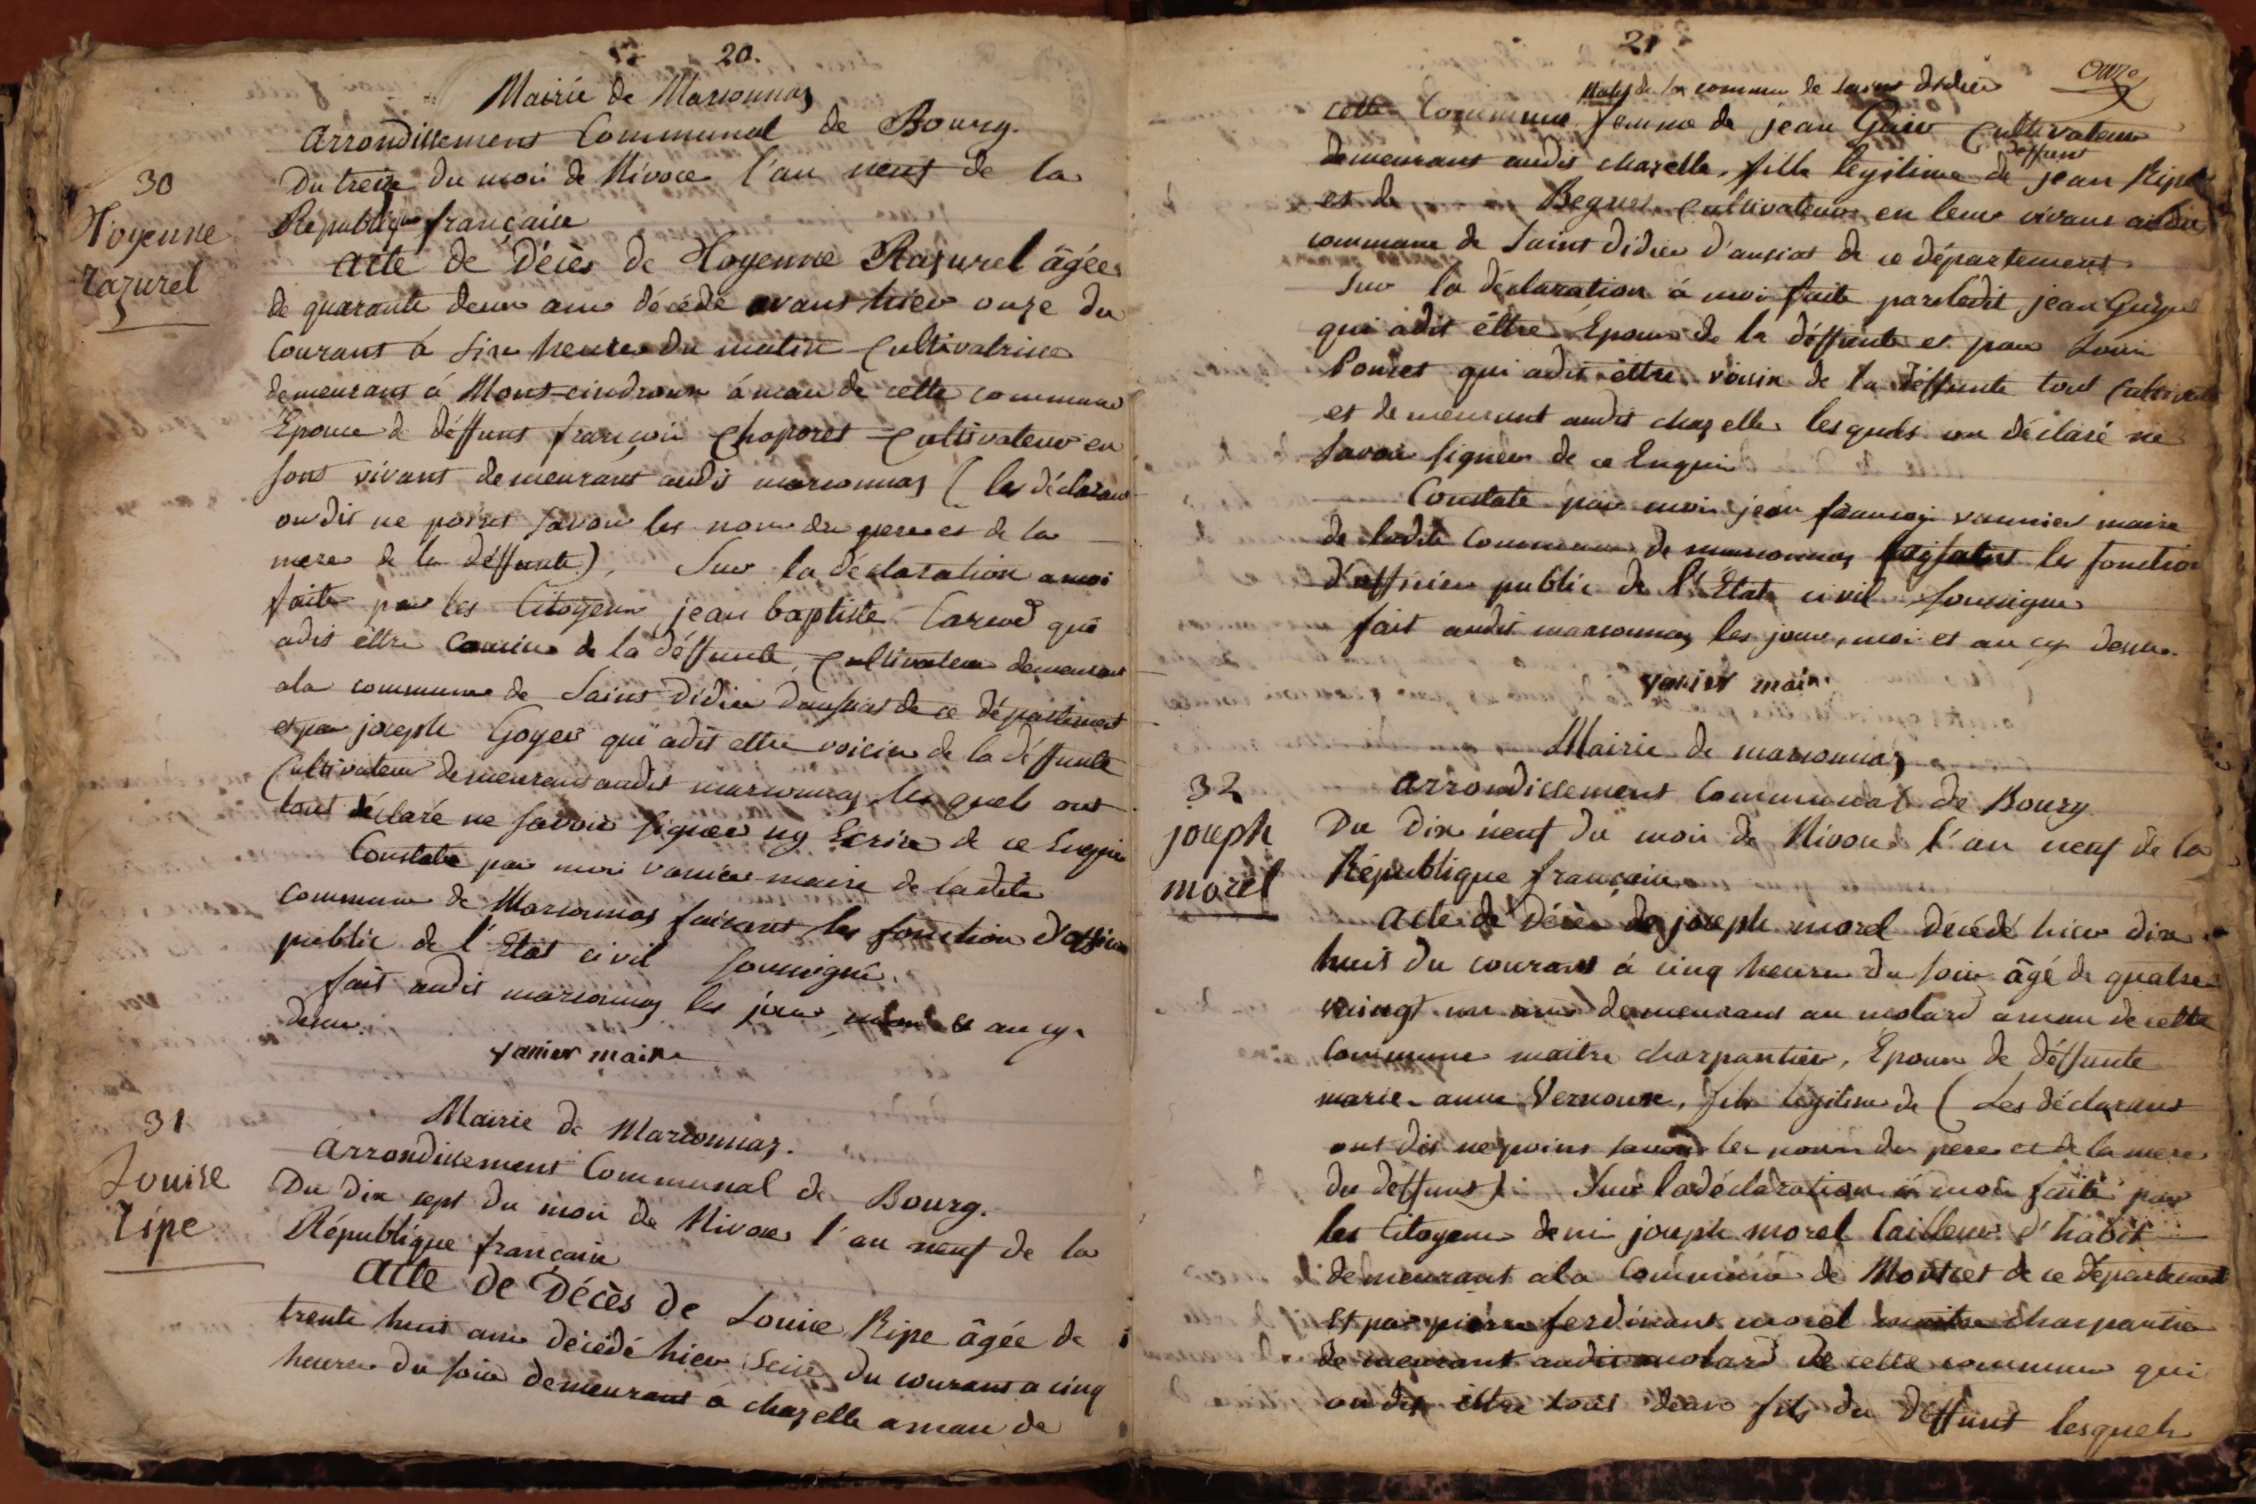 20.
Mairie de Marsonnas
arrondissement Communal de Bourg.
30
Du treize du mois de Nivose l'an neuf de la
Republique française
Toyenne
razurel
acte de Décès de Toyenne Razurel âgée
de quarante deux ans décédé avant hier onze du
Courant à six heures du matin Cultivatrice
demeurant à Mont-cindroux ámau de cette commune
Epouse de déffunt françois Chaporet Cultivateur en
sont vivant demeurant audit marsonnas (les déclarant
on dit ne point savoir les nom du pere et de la
mere de la déffunte), Sur la déclaration a moi
faite par les Citoyens jean baptiste Carad qui
adit êttre Cousin de la déffunte, Cultivateur demeurant
ala commune de Saint Didier daussiat de ce département
et par joseph Goyer qui adit ettre voisin de la déffunte
Cultivateur demeurant audit marsonnas les quels ont
tout déclaré ne savoir signer ny Ecrire de ce Enquis
Constaté par moi vanier maire de ladite
commune de Marsonnas faisant les fonction d'officier
public de l'Etat civil soussigné.
fait audit marsonnas les jour, mois et an cy
dessu.
vanier maire
31
Louise
ripe
Mairie de Marsonnas.
arrondissement Communal de Bourg.
Du dix sept du mois de Nivose l'an neuf de la
République française
acte de Décès de Louise Ripe âgée de
trente huit ans décédé hier seize du courant a cinq
heures du soir demeurant à chazelle amau de
21
onze
natif de la commune de saint didier
cette Commune femme de jean Guiv Cultivateur
deffunt
demeurant audit chazelle, fille légitime de jean Ripe
et de Beguet Cultivateur en leur vivant
commune de Saint Didier d'ausiat de ce département
Sur la déclaration á moi faite par ledit jean
qui adit êttre Epoux de la déffunte et par Louis
Poncet qui adit êttre voisin de la déffunte tout
et demeurant audit chazelle lesquels on déclaré ne
savoir signer de ce Enquis
Constaté par moi jean françois vannier maire
de ladite Commune de marsonnas les fonction
d'officier public de l'Etat civil soussigné
fait audit marsonnas les jour, moi et an cy dessu.
vanier maire
Mairie de marsonnas
32
joseph
morel
arrondissement Communal de Bourg
Du dix neuf du mois de Nivose l'an neuf de la
République française
acte de Décès de joseph morel décédé hier dix
huit du courant á cinq heures du soir âgé de quatre
vaingt un ans demeurant au molard amau de cette
Commune maitre charpantier, Epoux de déffunte
marie-anne Vernoux, fils légitime de (Les déclarant
ont dit ne point savoir les nom du pere et de la mere
du deffunt) Sur la déclaration á moi faite par
les Citoyens deni joseph morel tailleur d'habit
demeurant ala Commune de Montcet de ce département
Et par pierre ferdinant morel maitre charpantier
demeurant audit molard de cette commune qui
on dit êttre tout deux fils du deffunt lesquels